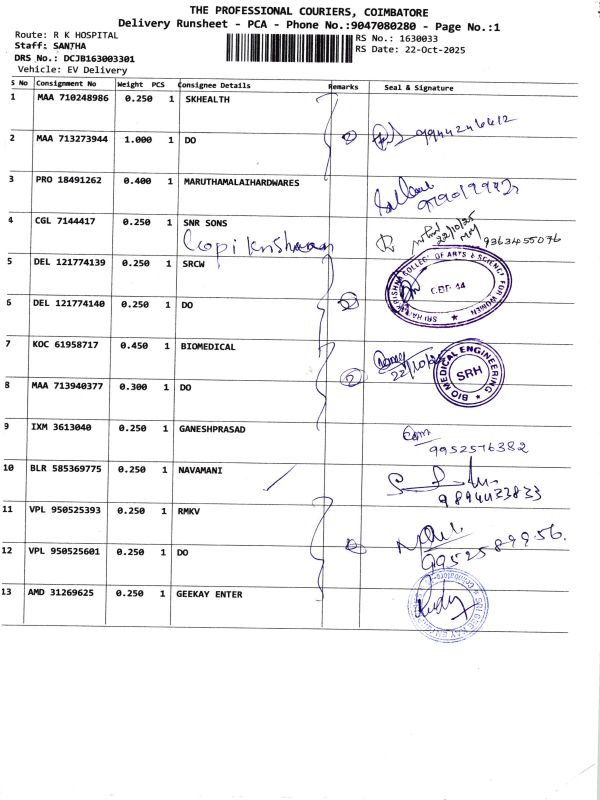 THE PROFESSIONAL COURIERS, COIMBATORE
Delivery Runsheet - PCA - Phone No.:9047080280 - Page No.:1
Route: R K HOSPITAL
Staff: SANTHA
DRS No.: DCJB163003301
Vehicle: EV Delivery
RS No.: 1630033
RS Date: 22-Oct-2025
S No Consignment No Weight PCS Consignee Details Remarks Seal & Signature
1 MAA 710248986 0.250 1 SKHEALTH
2 MAA 713273944 1.000 1 DO 2 9944246612
3 PRO 18491262 0.400 1 MARUTHAMALAIHARDWARES
4 CGL 7144417 0.250 1 SNR SONS
Gopi Krishnan 22/10/25 9363455076
5 DEL 121774139 0.250 1 SRCW
SRI RAMAKRISHNA COLLEGE OF ARTS & SCIENCE FOR WOMEN
CBE-44
6 DEL 121774140 0.250 1 DO 2
7 KOC 61958717 0.450 1 BIOMEDICAL
22/10/25
BIO MEDICAL ENGINEERING
SRH
8 MAA 713940377 0.300 1 DO 2
9 IXM 3613040 0.250 1 GANESHPRASAD
9952576382
10 BLR 585369775 0.250 1 NAVAMANI
9894423833
11 VPL 950525393 0.250 1 RMKV
12 VPL 950525601 0.250 1 DO
9952589956.
13 AMD 31269625 0.250 1 GEEKAY ENTER